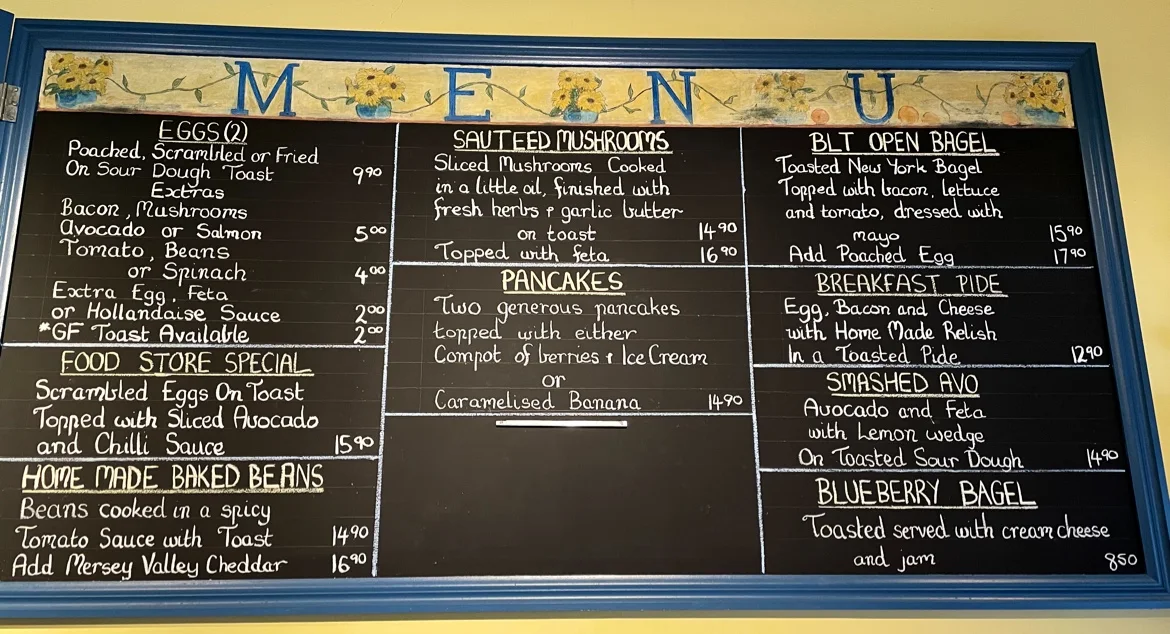 MENU
EGGS (2)
Poached, Scrambled or Fried
On Sour Dough Toast 9⁹⁰
Extras
Bacon, Mushrooms
avocado or Salmon 5⁰⁰
Tomato, Beans
or Spinach 4⁰⁰
Extra Egg, Feta
or Hollandaise Sauce 2⁰⁰
*GF Toast Available 2⁰⁰
FOOD STORE SPECIAL
Scrambled Eggs On Toast
Topped with Sliced Avocado
and Chilli Sauce 15⁹⁰
HOME MADE BAKED BEANS
Beans cooked in a spicy
Tomato Sauce with Toast 14⁹⁰
Add Mersey Valley Cheddar 16⁹⁰
SAUTEED MUSHROOMS
Sliced Mushrooms Cooked
in a little oil, finished with
fresh herbs & garlic butter
on toast 14⁹⁰
Topped with feta 16⁹⁰
PANCAKES
Two generous pancakes
topped with either
Compot of berries & Ice Cream
or
Caramelised Banana 14⁹⁰
BLT OPEN BAGEL
Toasted New York Bagel
Topped with bacon, lettuce
and tomato, dressed with
mayo 15⁹⁰
Add Poached Egg 17⁹⁰
BREAKFAST PIDE
Egg, Bacon and Cheese
with Home Made Relish
In a Toasted Pide 12⁹⁰
SMASHED AVO
Avocado and Feta
with Lemon wedge
On Toasted Sour Dough 14⁹⁰
BLUEBERRY BAGEL
Toasted served with cream cheese
and jam 8⁵⁰